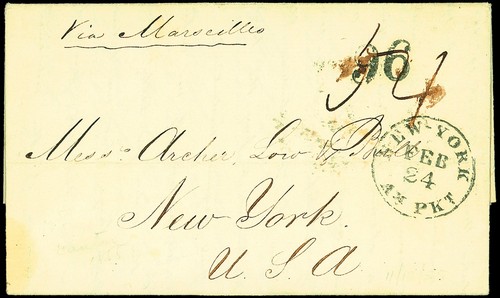 Via Marseilles
96
54
Messrs Archer, Low & Bull
New York.
U. S. A
NEW-YORK
FEB
24
AM PKT